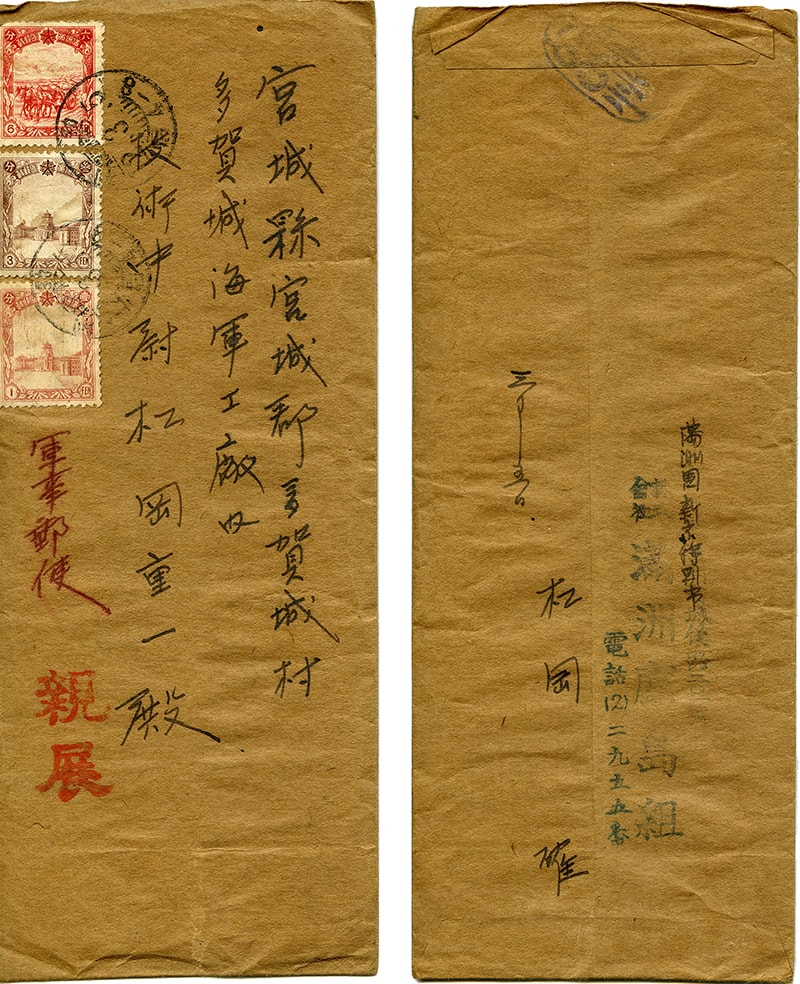 宮城縣宮城郡多賀城村
多賀城海軍工廠内
技術中尉松岡重一殿
軍事郵便
親展
六
分
6
3
分
1
8-7
満洲国新京特別市
株式
會社
満洲廣島組
電話(2)二九五五番
三月五日
松岡
確